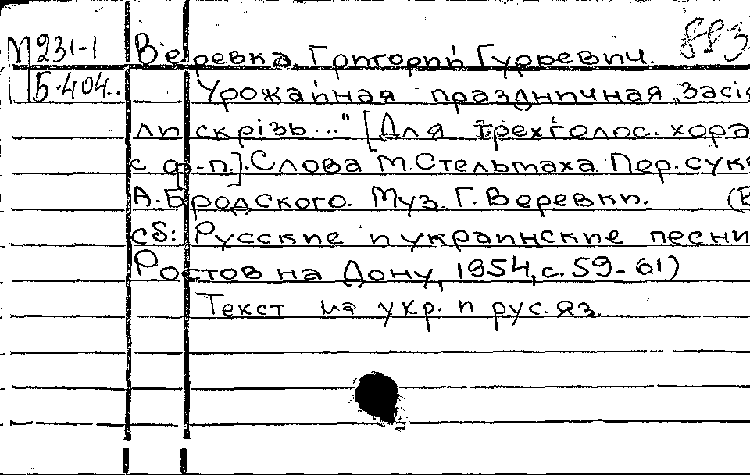 М231-1 Веревка, Григорий Гурьевич. 883
Б.404.. Урожайная праздничная „Засія
ли скрізь..." [Для трехголос. хора
с ф-п.]. Слова М. Стельмаха. Пер. с ук
А. Бродского. Муз. Г. Веревки. (В
сб: Русские и украинские песни
Ростов на Дону, 1954, с. 59-61)
Текст на укр. и рус. яз.